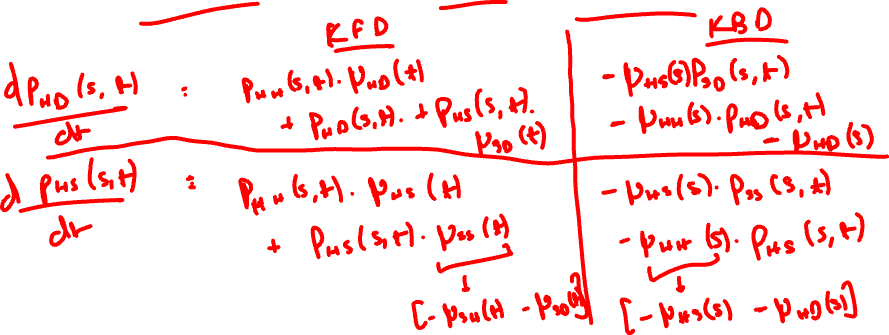 KFD
KBD
d P_HD(s,t) / dt : P_HH(s,t). μ_HD(t)
+ P_HD(s,t). + P_HS(s,t).
μ_SD(t)
- μ_HS(s) P_SD(s,t)
- μ_HH(s). P_HD(s,t)
- μ_HD(s)
d P_HS(s,t) / dt : P_HH(s,t). μ_HS(t)
+ P_HS(s,t). μ_SS(t)
[- μ_SH(t) - μ_SD(t)]
- μ_HS(s). P_SS(s,t)
- μ_HH(s). P_HS(s,t)
[- μ_HS(s) - μ_HD(s)]